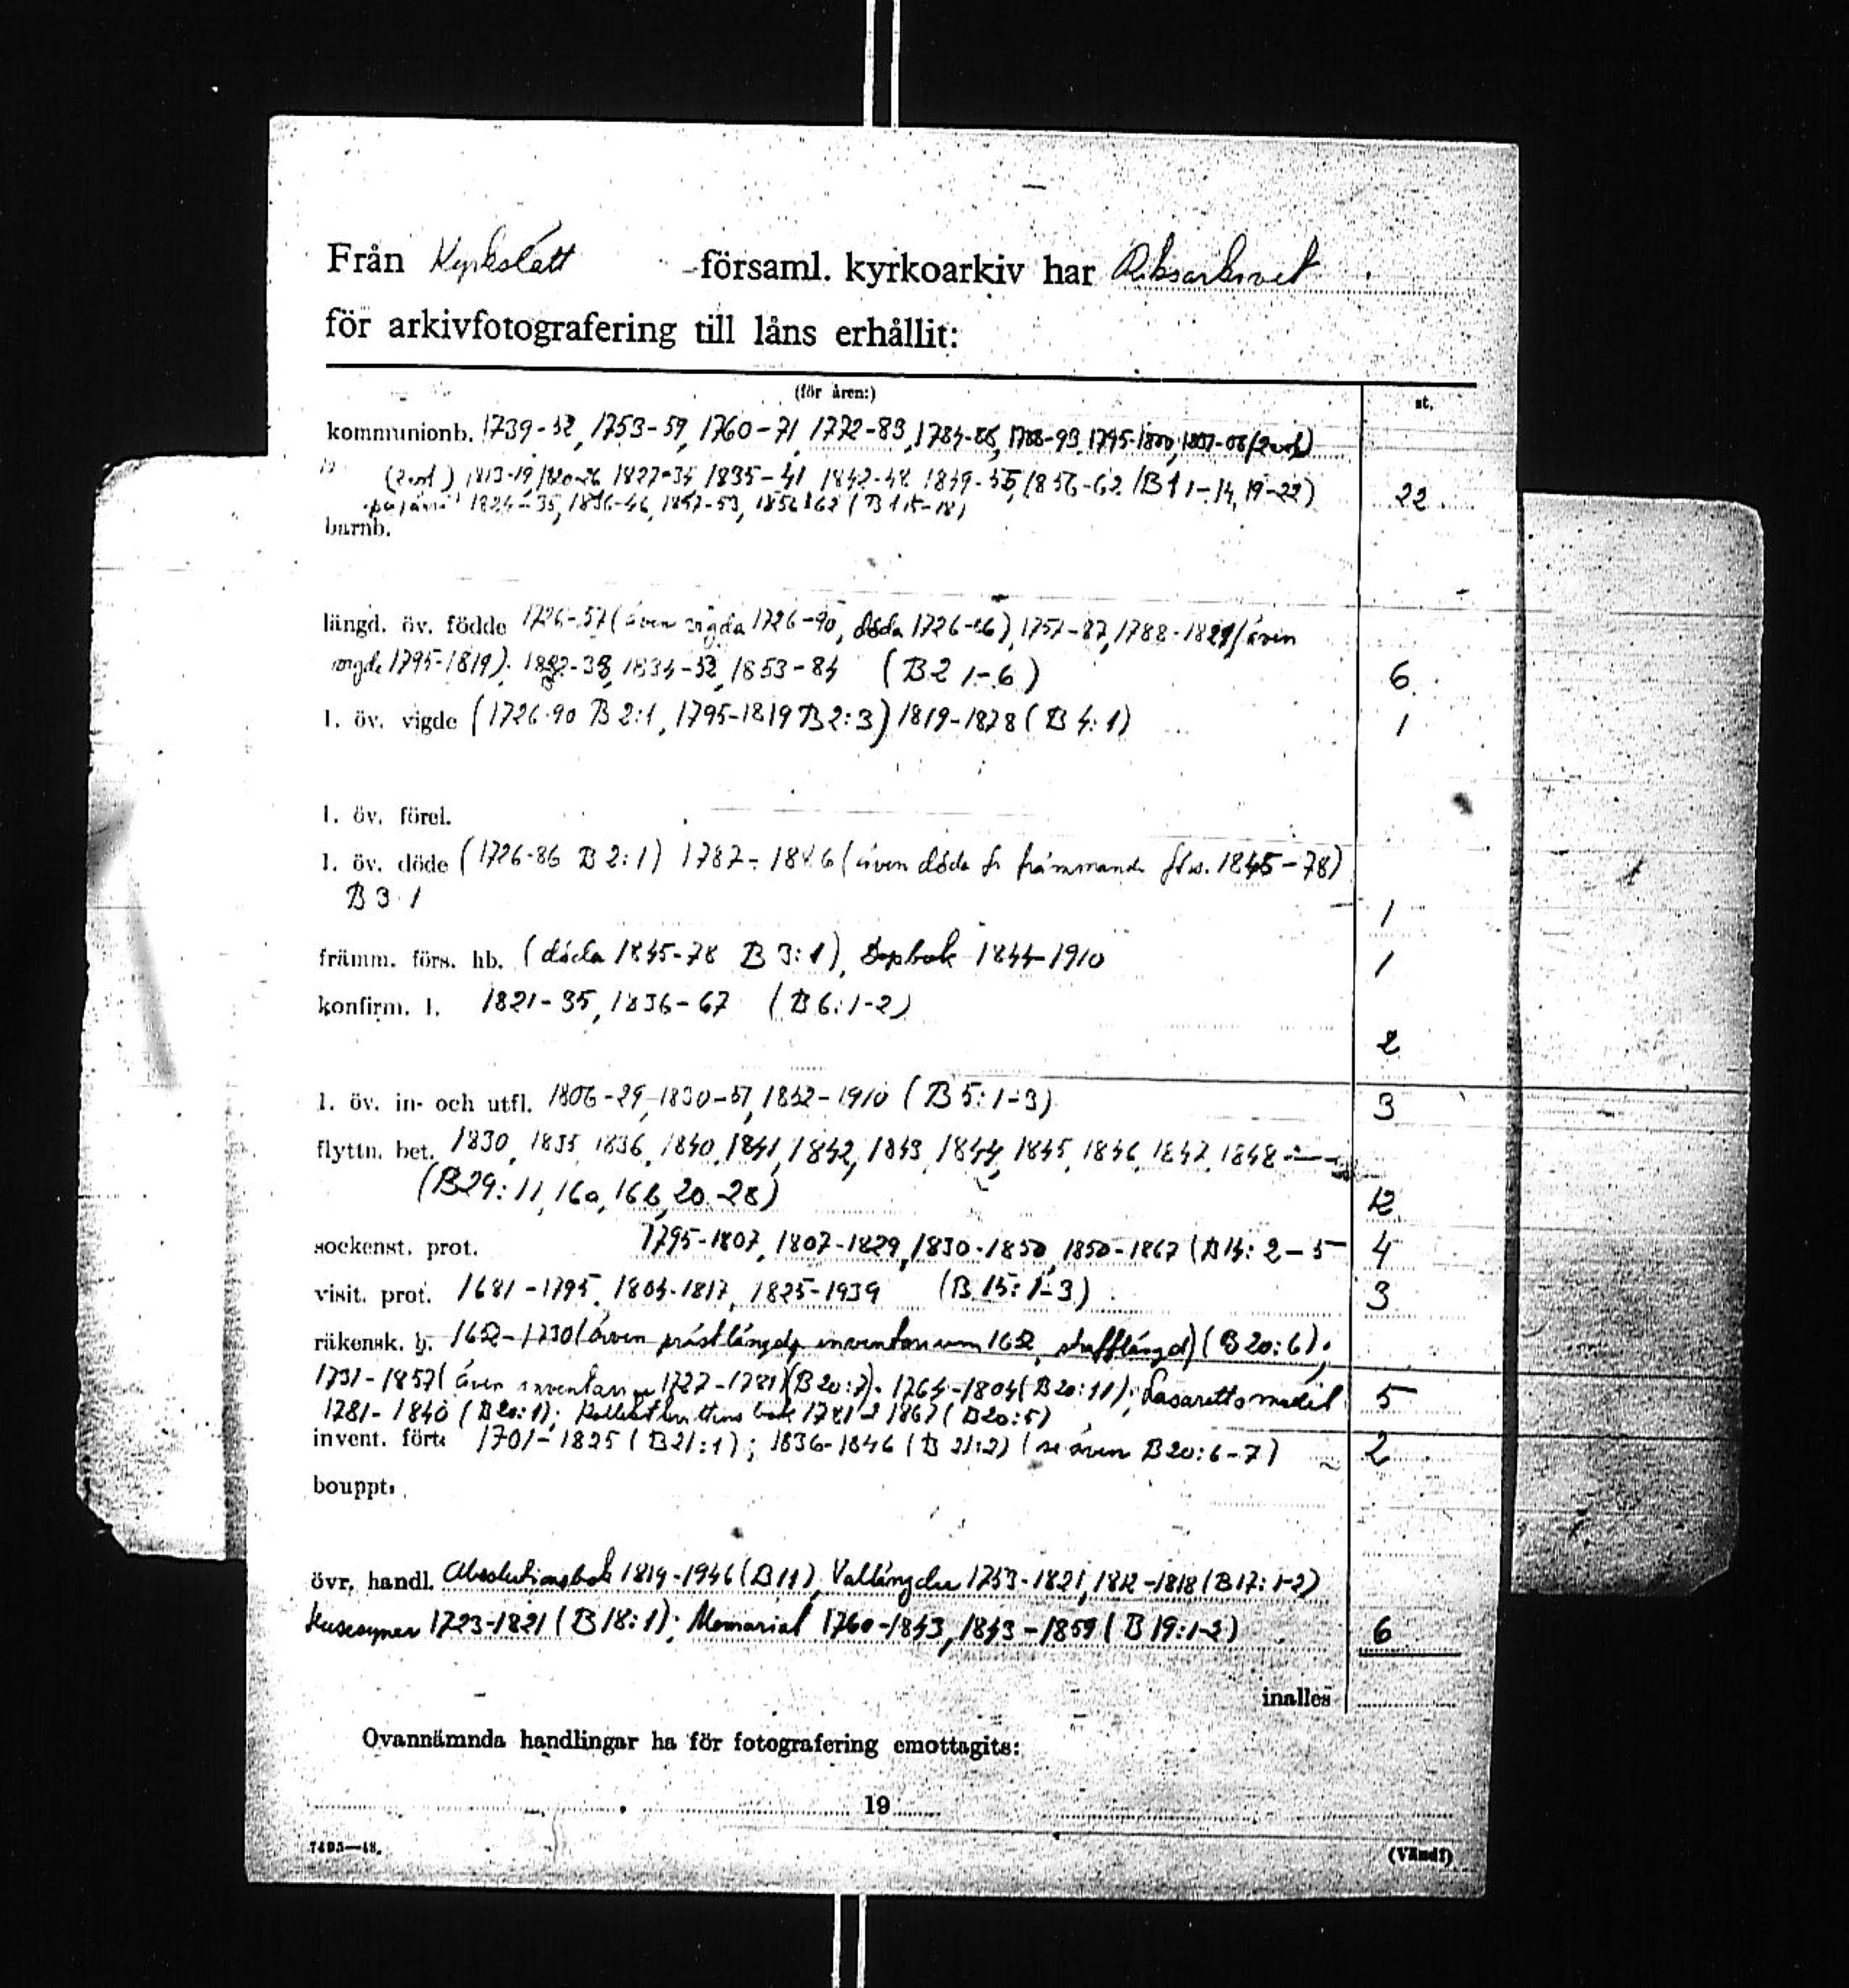 Från Kyrkslätt församl. kyrkoarkiv har Riksarkivet
för arkivfotografering till låns erhållit:
(för åren:) st.
kommunionb. 1739-52, 1753-59, 1760-71, 1772-83, 1784-88, 1788-93, 1795-1800, 1807-08 (2 vol)
(2 vol.) 1813-19 1820-26 1827-34 1835-41 1842-48 1849-55, 1856-62 (B1 1-14, 19-22) 22
1824-35, 1836-46, 1847-53, 1856-62 (B1 15-18)
barnb.
längd. öv. födde 1726-57 (även vigda 1726-90, döda 1726-86), 1757-87, 1788-1821 (även
vigde 1795-1819). 1822-33, 1834-52, 1853-84 (B2 1-6) 6
l. öv. vigde (1726-90 B 2:1, 1795-1819 B 2:3) 1819-1878 (B 4:1) 1
l. öv. förel.
l. öv. döde (1726-86 B 2:1) 1787-1846 (även döda fr främmande förs. 1845-78)
B 3 1 1
främm. förs. hb. (döda 1845-78 B 3:1), Dopbok 1844-1910 1
konfirm. l. 1821-35, 1836-67 (B 6:1-2)
2
l. öv. in- och utfl. 1806-29, 1830-51, 1852-1910 (B 5:1-3) 3
flyttn. bet. 1830, 1835, 1836, 1840, 1841, 1842, 1843, 1844, 1845, 1846, 1847, 1848
(B29: 11, 16a, 16b, 20-28) 12
sockenst. prot. 1795-1807, 1807-1829, 1830-1850, 1850-1867 (B 14: 2-5 4
visit. prot. 1681-1795, 1804-1817, 1825-1939 (B 15: 1-3) 3
räkensk. b. 1652-1730 (även prästlängd, inventarium 1652, ) (B 20:6);
1731-1857 (även inventarium 1727-1781) (B 20:7). 1764-1804 (B 20:11); Lasarettsmedel 5
1781-1840 (B 20:1); bok 1781-1867 (B 20:5)
invent. fört. 1701-1825 (B 21:1); 1836-1846 (B 21:2) (se även B 20:6-7) 2
bouppt.
övr. handl. Absolutionsbok 1819-1946 (B 11), Vallängder 1753-1821, 1812-1818 (B 17: 1-2)
Husesyner 1723-1821 (B 18:1); Memorial 1760-1843, 1843-1859 (B 19:1-2) 6
inalles
Ovannämnda handlingar ha för fotografering emottagits:
19
7495—48.
(Vänd!)